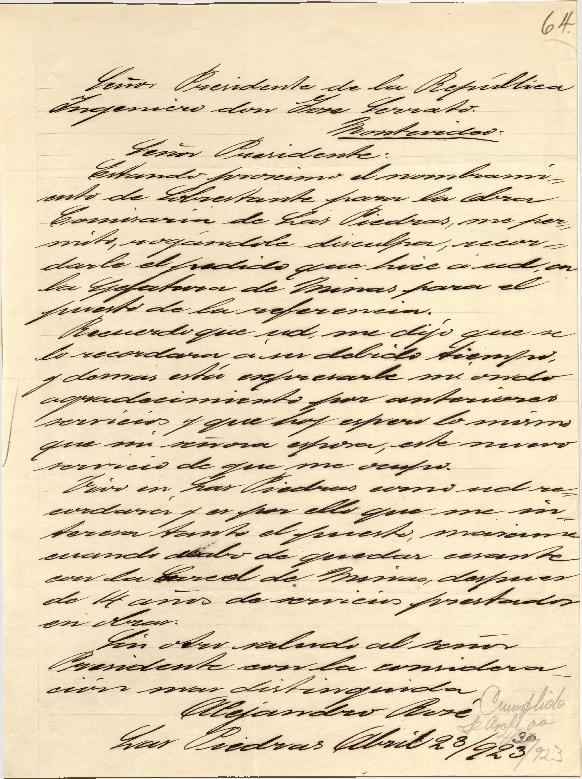 64.
Señor Presidente de la República
Ingeniero don José Serrato.
Montevideo.
Señor Presidente:
Estando proximo el nombrami-
ento de Sobrestante para la obra
Comisaria de Las Piedras, me per-
mito, rogándole disculpa, recor-
darle el pedido que hice á ud, en
la Jefatura de Minas para el
puesto de la referencia.
Recuerdo que ud, me dijo que se
lo recordara á su debido tiempo,
y demas está expresarle mi ondo
agradecimiento por anteriores
servicios y que hoy espero lo mismo
que mi señora esposa, este nuevo
servicio de que me ocupo.
Vivo en Las Piedras como ud re-
cordará, y es por ello que me in-
teresa tanto el puesto, maxime
cuando acabo de quedar cesante
con la Carcel de Minas, despues
de 14 años de servicios prestados
en obras.
Sin otro saludo al señor
Presidente con la considera-
ción mas distinguida
Alejandro Rosé
Las Piedras Abril 23/923
Cumplido
30/923